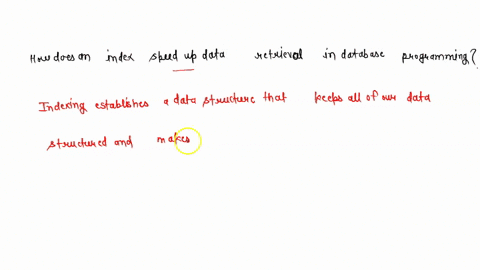 How does an index speed up data retrieval in database programming?
Indexing establishes a data structure that keeps all of our data
structured and makes